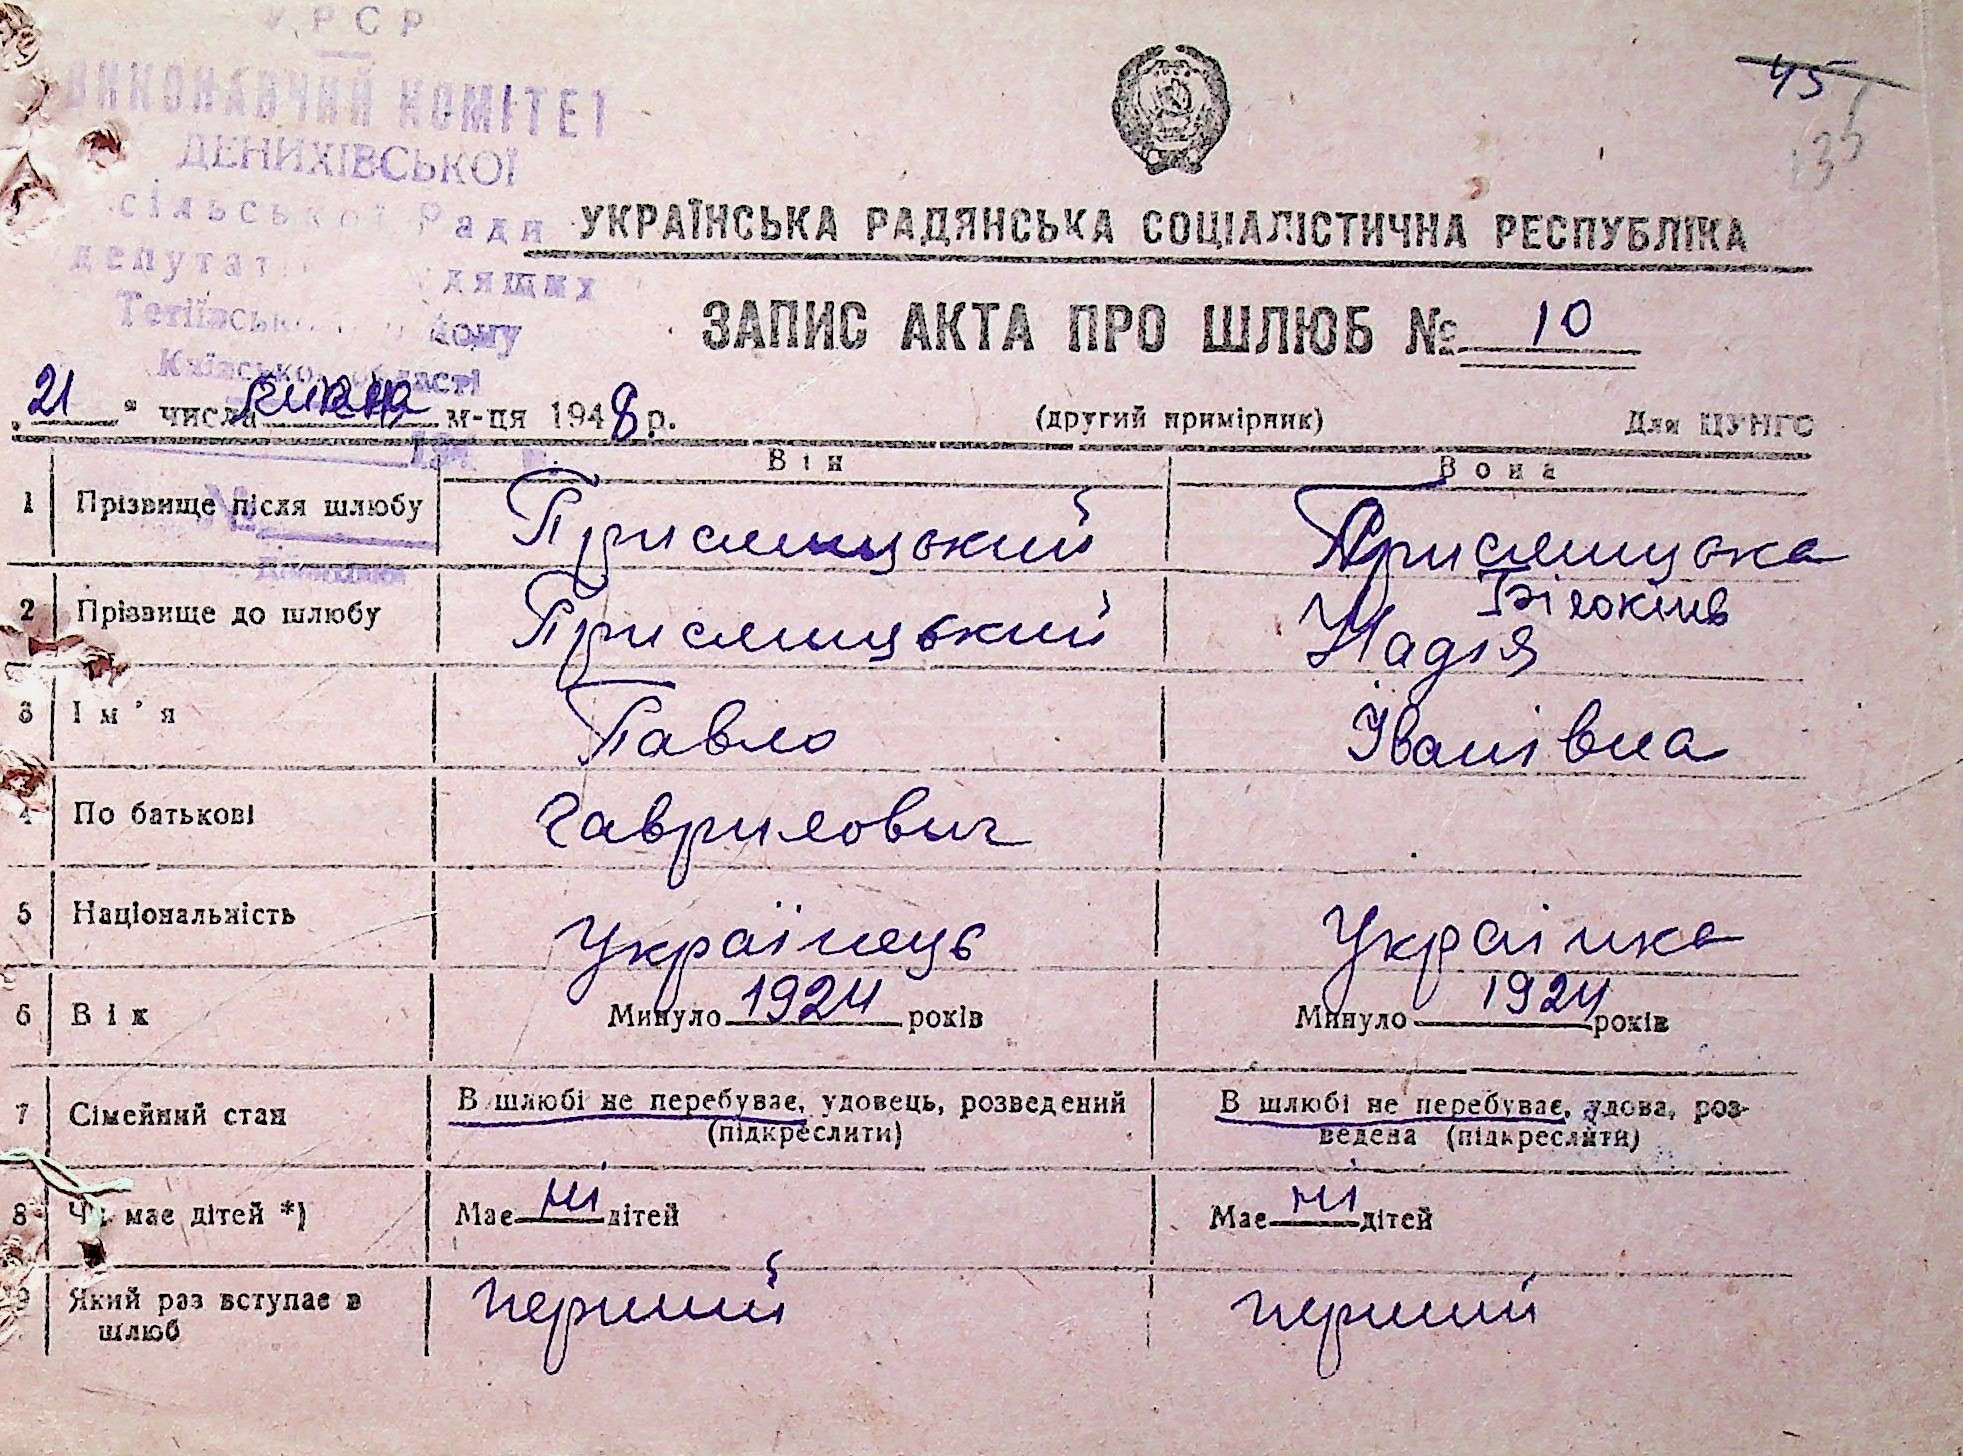 УРСР
ВИКОНАВЧИЙ КОМІТЕТ
ДЕНИХІВСЬКОЇ
сільської Ради
депутатів трудящих
Тетіївського району
Київської області
45
135
УКРАЇНСЬКА РАДЯНСЬКА СОЦІАЛІСТИЧНА РЕСПУБЛІКА
ЗАПИС АКТА ПРО ШЛЮБ № 10
„21" числа м-ця 1948 р. (другий примірник) Для ЦУНГО
Він Вона
1 Прізвище після шлюбу Присяницький Присяницька
2 Прізвище до шлюбу Присяницький Білокінь
Надія
3 Ім'я Павло Іванівна
4 По батькові Гаврилович
5 Національність Українець Украінка
6 Вік Минуло 1924 років Минуло 1924 років
7 Сімейний стан В шлюбі не перебуває, удовець, розведений (підкреслити) В шлюбі не перебуває, удова, роз-
ведена (підкреслити)
8 Чи має дітей *) Має ні дітей Має ні дітей
9 Який раз вступає в перший перший
шлюб